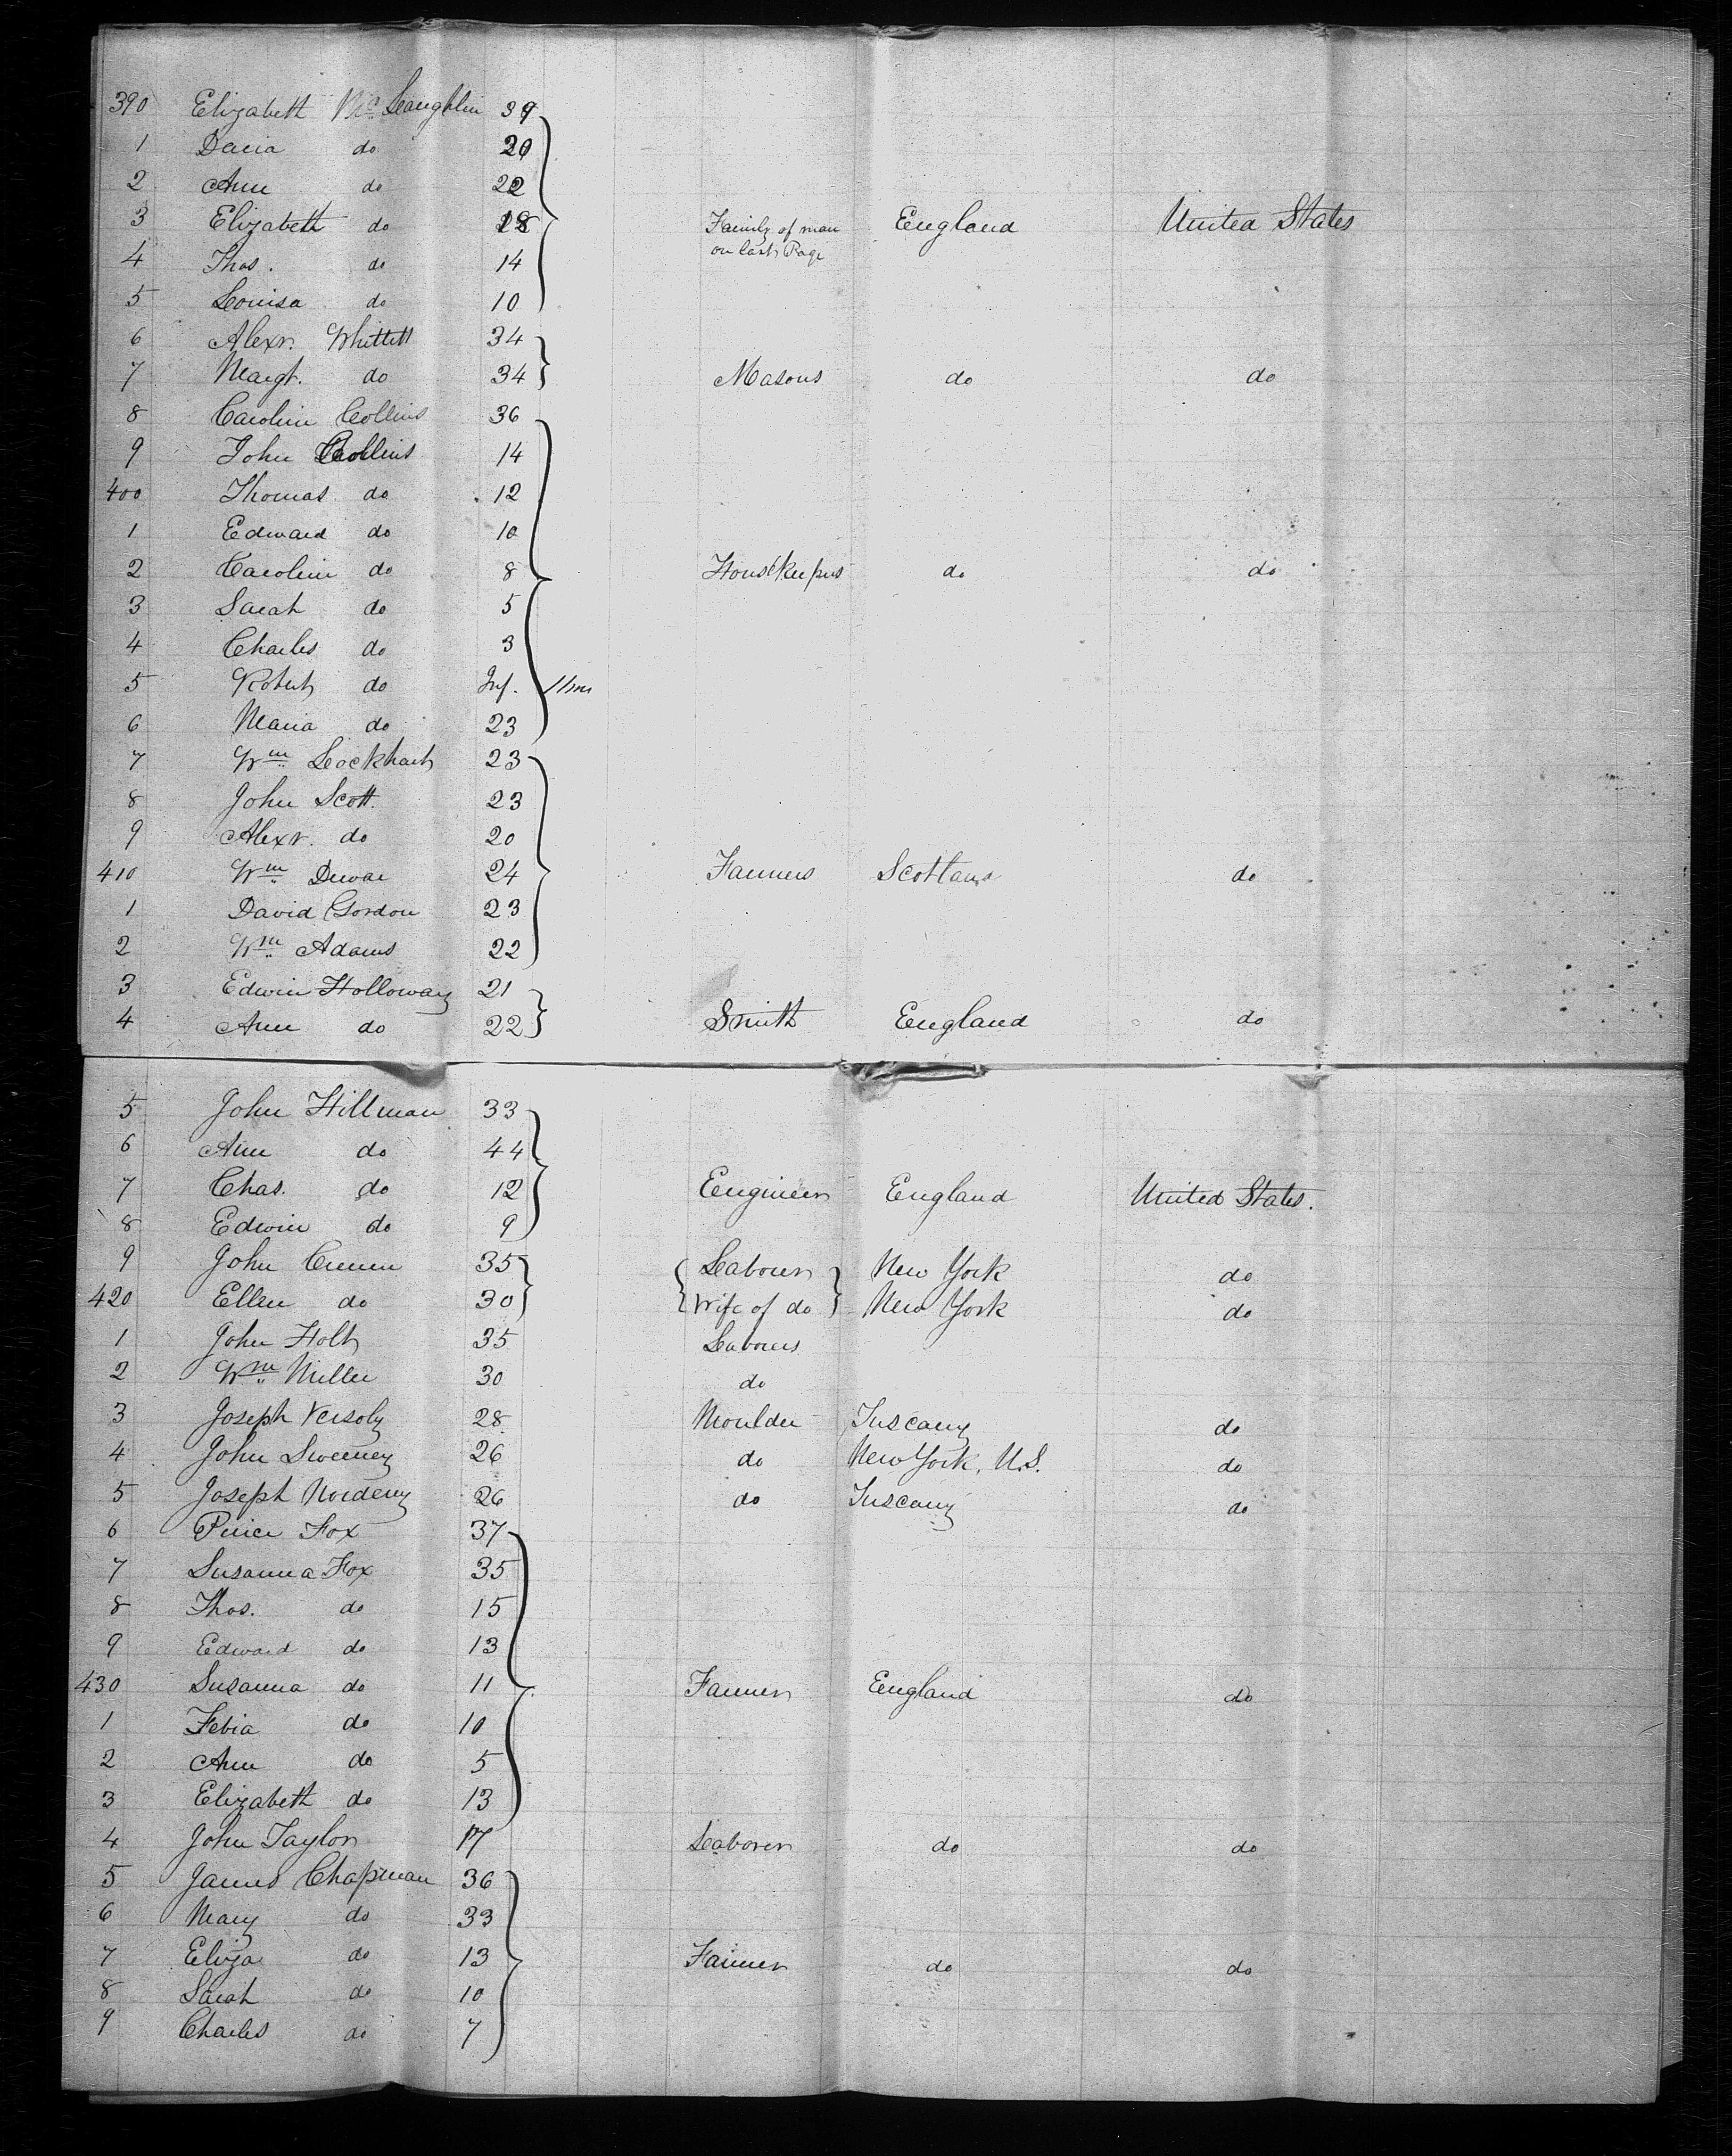 390 Elizabeth McLaughlin 39
1 Daria do 20
2 Ann do 22
3 Elizabeth do 18 Family of man England United States
on last Page
4 Thos. do 14
5 Louisa do 10
6 Alexr. Whittett 34
7 Margt. do 34 Masons do do
8 Caroline Collins 36
9 John Collins 14
400 Thomas do 12
1 Edward do 10
2 Caroline do 8 Housekeepers do do
3 Sarah do 5
4 Charles do 3
5 Robert do Inf.
6 Maria do 23
7 Wm Lockhart 23
8 John Scott. 23
9 Alexr. do 20
410 Wm Dewar 24 Farmers Scotland do
1 David Gordon 23
2 Wm Adams 22
3 Edwin Holloway 21
4 Ann do 22 Smith England do
5 John Hillman 33
6 Ann do 44
7 Chas. do 12 Engineer England United States.
8 Edwin do 9
9 John 35 Labourer New York do
420 Ellen do 30 Wife of do New York do
1 John Holt 35 Labourers
2 Wm Miller 30 do
3 Joseph Versoly 28 Moulder Tuscany do
4 John Sweeney 26 do New York, U.S. do
5 Joseph 26 do Tuscany do
6 Fox 37
7 Susanna Fox 35
8 Thos. do 15
9 Edward do 13
430 Susanna do 11 Farmer England do
1 Febia do 10
2 Ann do 5
3 Elizabeth do 13
4 John Taylor 17 Laborer do do
5 James Chapman 36
6 Mary do 33
7 Eliza do 13 Farmer do do
8 Sarah do 10
9 Charles do 7